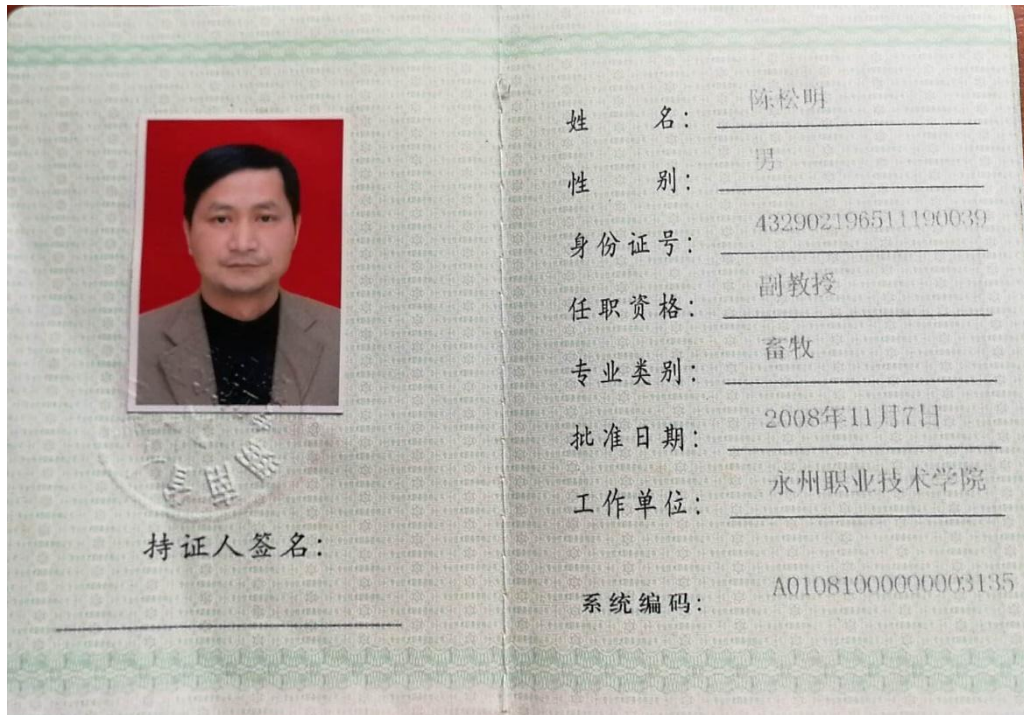 湖南省
持证人签名：
姓名：陈松明
性别：男
身份证号：432902196511190039
任职资格：副教授
专业类别：畜牧
批准日期：2008年11月7日
工作单位：永州职业技术学院
系统编码：A01081000000003135